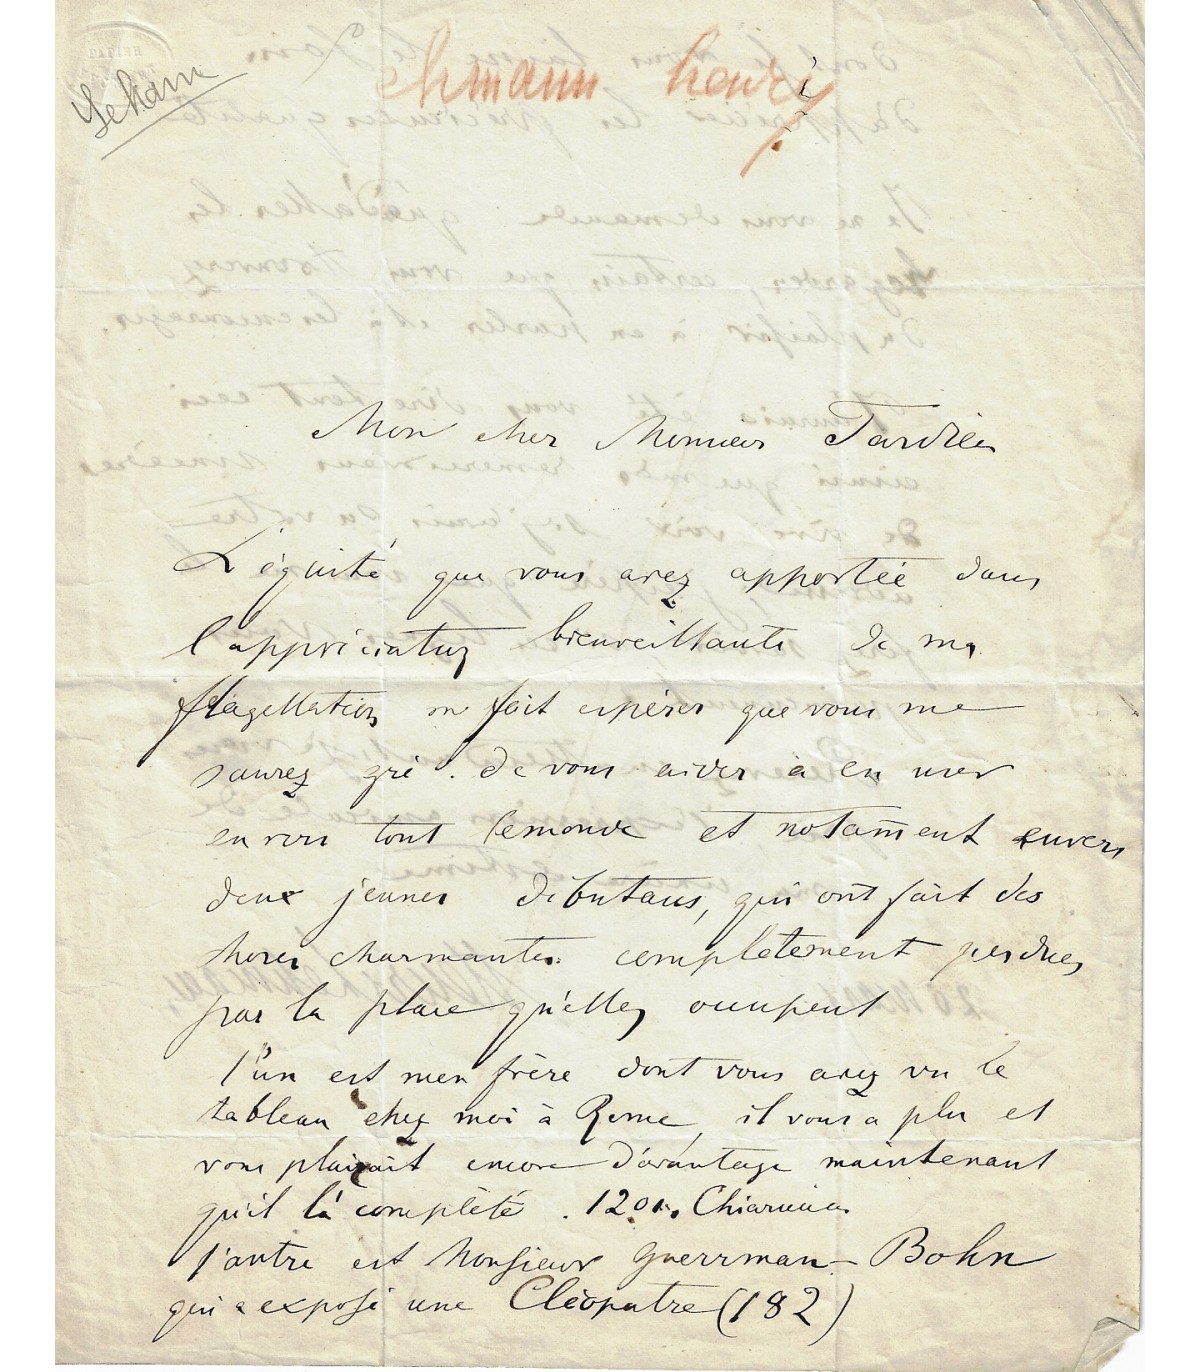 Lehman
ehmann henry
Mon cher Monsieur Tardieu
L'équité que vous avez apportée dans
l'appréciation bienveillante de ma
flagellation me fait espérer que vous me
saurez gré. de vous aider à en user
envers tout lemonde et notam̄ent envers
deux jeunes débutans, qui ont fait des
choses charmantes complètement perdues
par la place qu'elles occupent
l'un est mon frère dont vous avez vu le
tableau chez moi à Rome, il vous a plu et
vous plairait encore d'avantage maintenant
qu'il l'a complété. 1201.
l'autre est Monsieur Guerrman-Bohn
qui a exposé une Cléopatre (182)